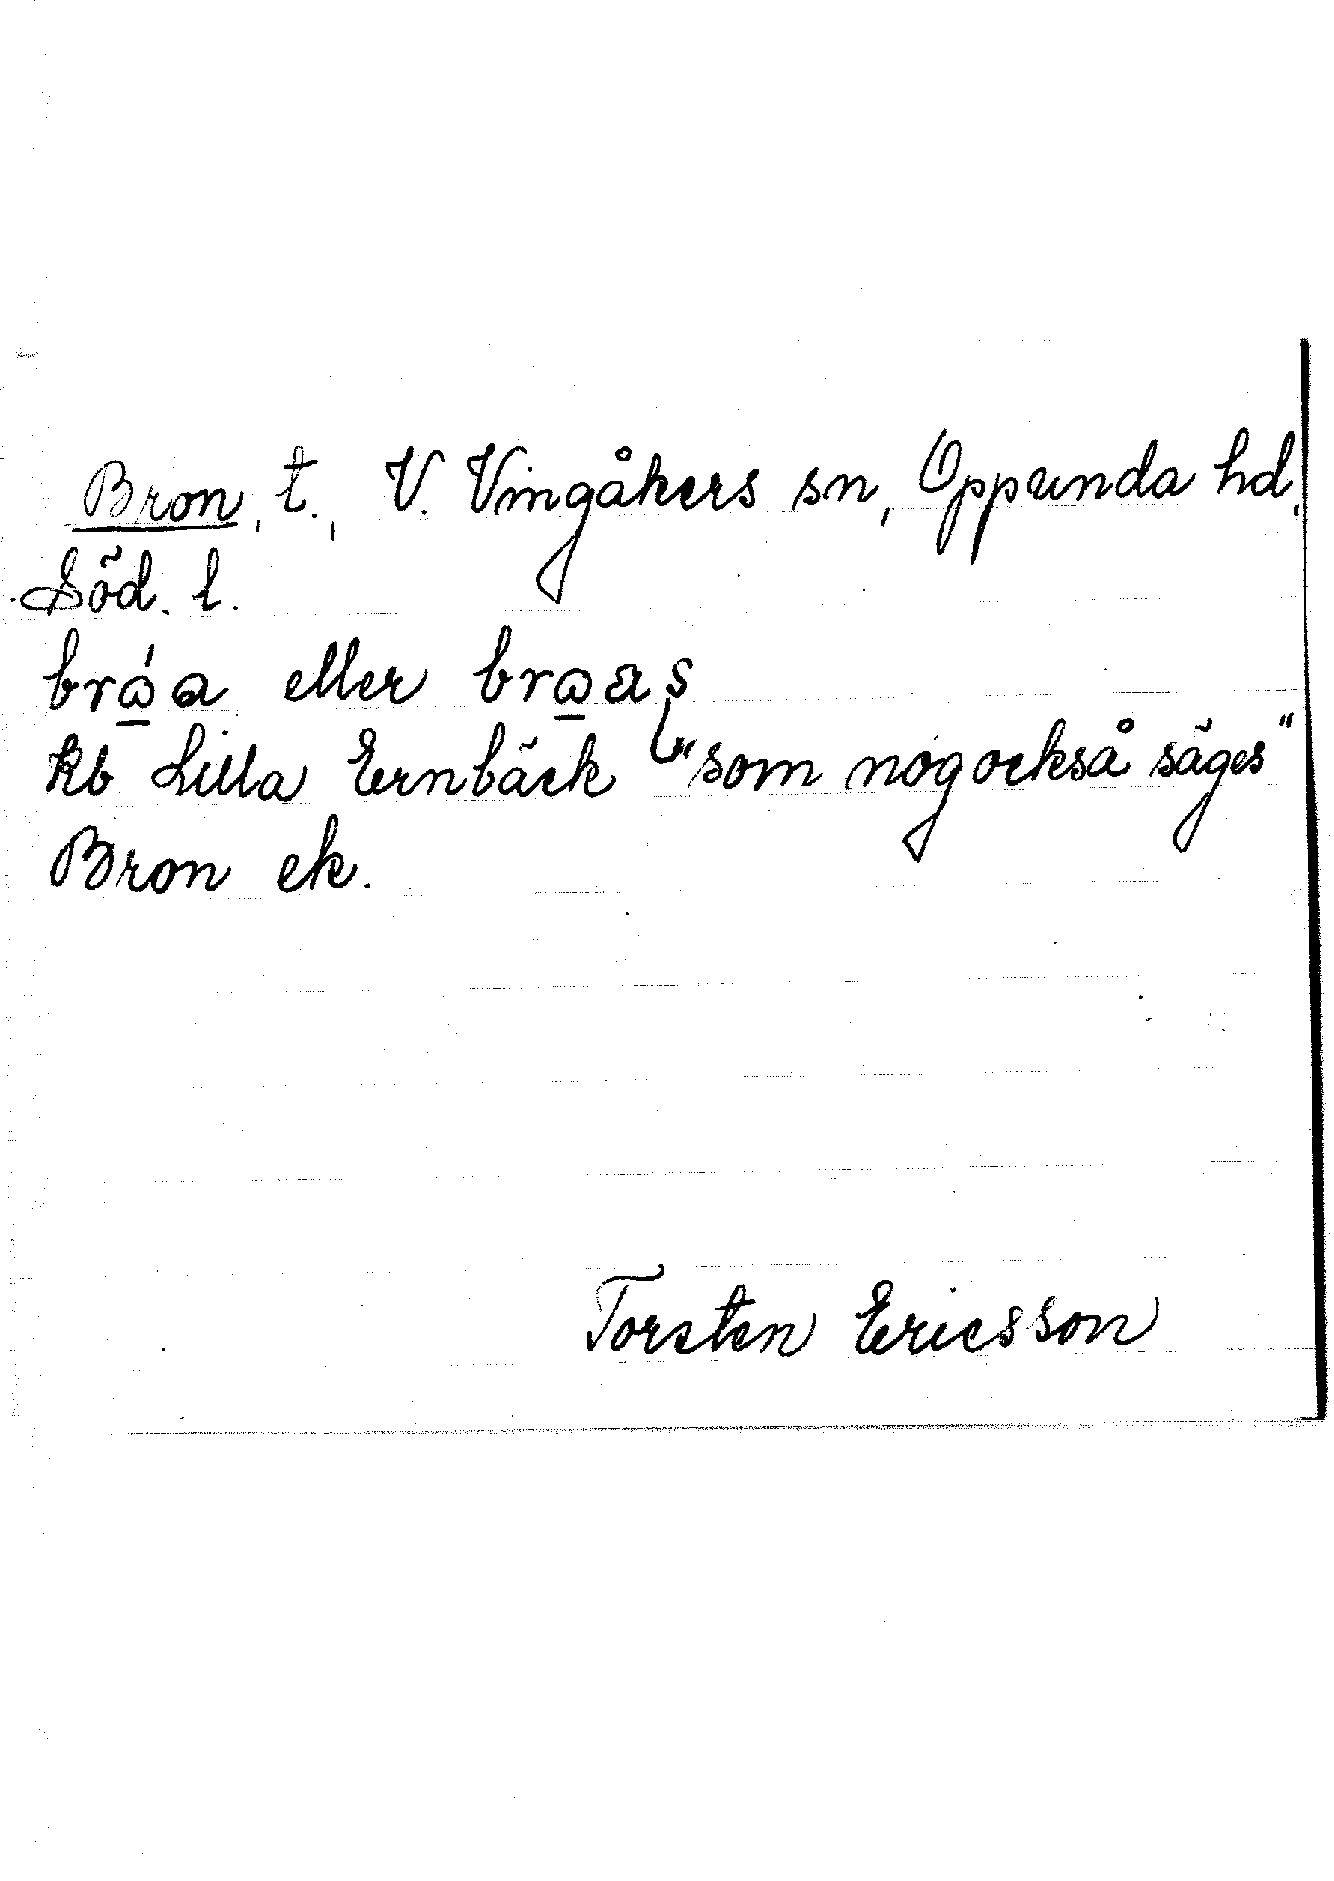 Bron, t., V. Vingåkers sn, Oppunda hd,
Söd. l.
eller
kb Lilla Ernbäck "som nog också säges"
Bron ek.
Torsten Ericsson